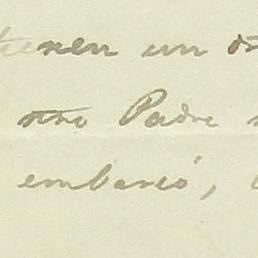 tienen un
otro Padre
embarcó,